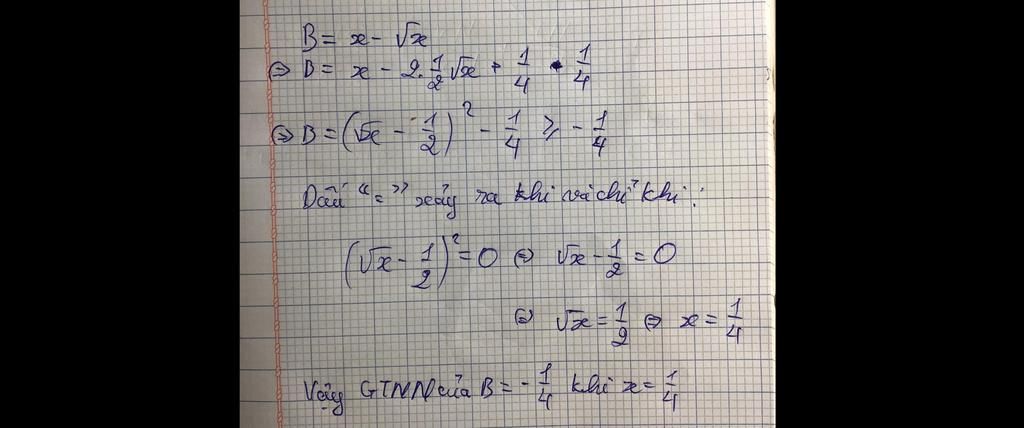 B = x - √x
⇔ B = x - 2.1/2√x + 1/4 - 1/4
⇔ B = (√x - 1/2)² - 1/4 ≥ - 1/4
Dấu "=" xảy ra khi và chỉ khi:
(√x - 1/2)² = 0 ⇔ √x - 1/2 = 0
⇔ √x = 1/2 ⇔ x = 1/4
Vậy GTNN của B = - 1/4 khi x = 1/4